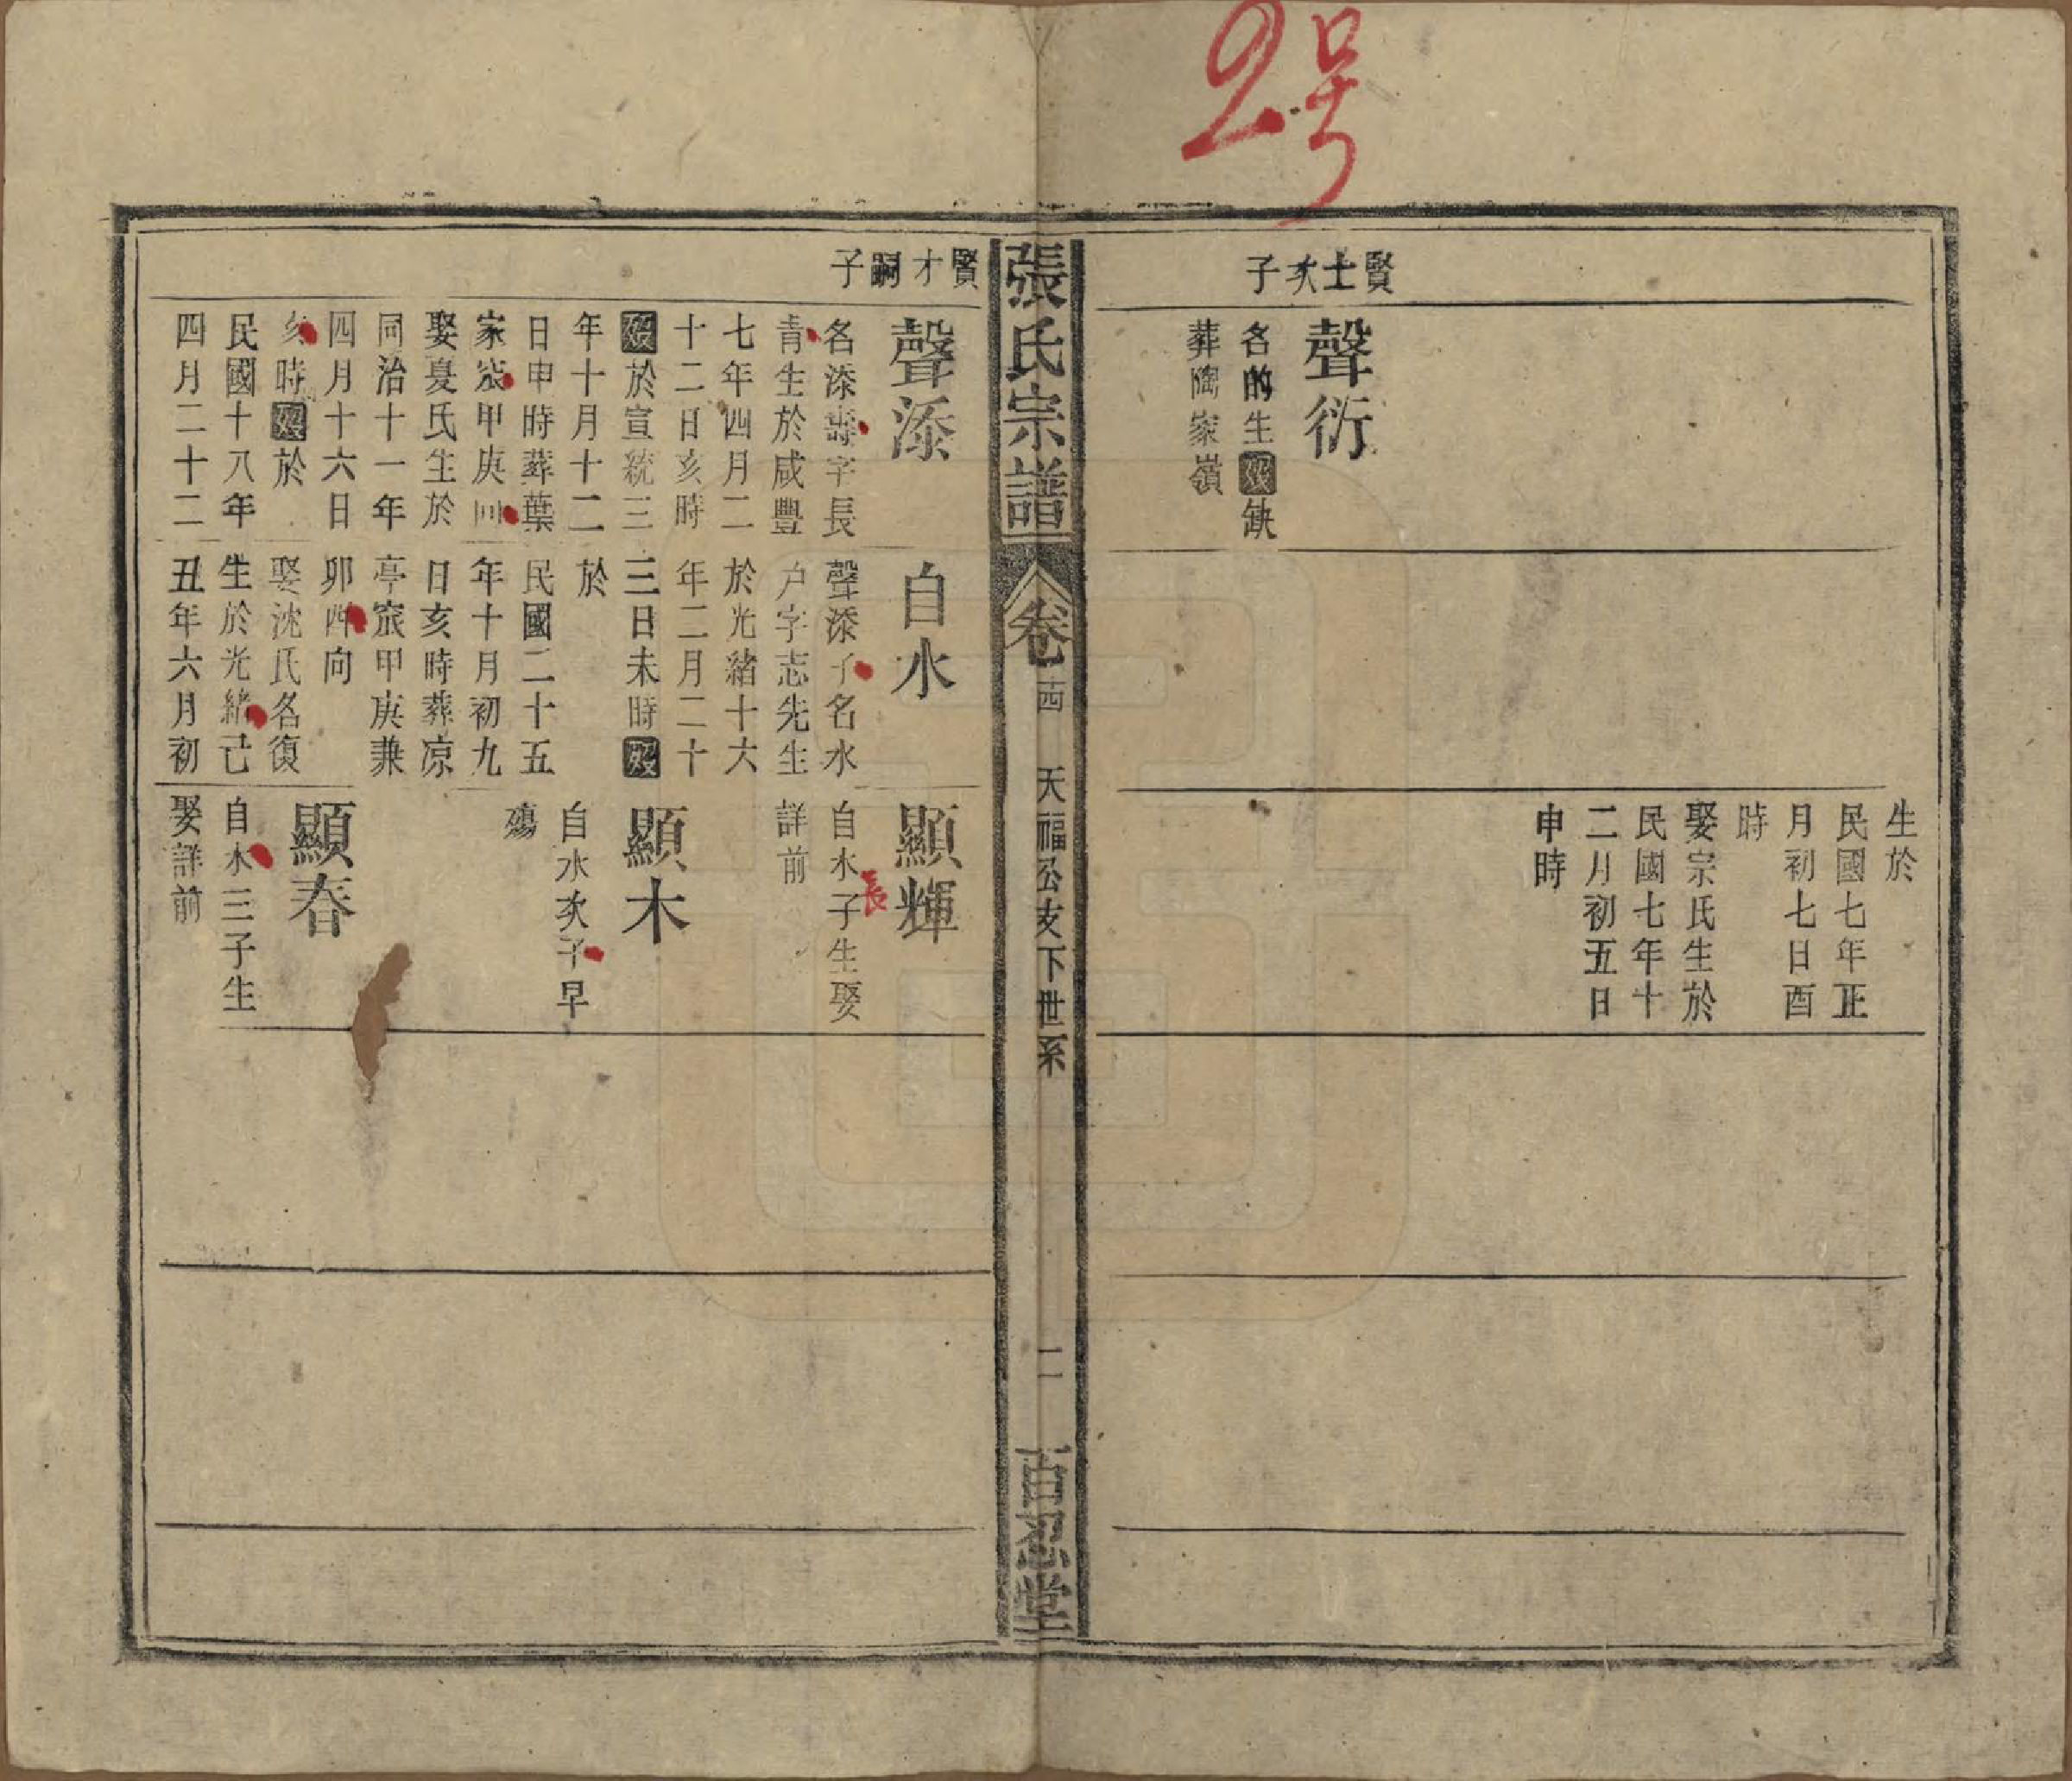 2号
賢士次子
聲衍
名的生歿缺
葬陶家嶺
生於
民國七年正
月初七日酉
時
娶宗氏生於
民國七年十
二月初五日
申時
張氏宗譜
卷
天福公支下世系
二
百忍堂
賢才嗣子
聲添
名添壽字長
青生於咸豐
七年四月二
十二日亥時
歿於宣統三
年十月十二
日申時葬葉
家㝔甲庚向
娶夏氏生於
同治十一年
四月十六日
亥時歿於
民國十八年
四月二十二
自水
聲添子名水
戸字志先生
於光緒十六
年二月二十
三日未時歿
於
民國二十五
年十月初九
日亥時葬凉
亭㝔甲庚兼
卯酉向
娶沈氏名復
生於光緒己
丑年六月初
顯輝
自水長子生娶
詳前
顯木
自水次子早
殤
顯春
自水三子生
娶詳前